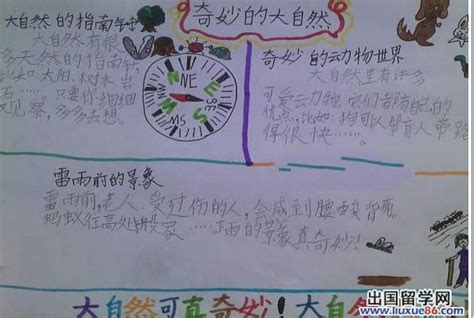 奇妙的大自然
大自然的指南针
大自然有很
多天然的指南针,
比如:太阳、树木、岩
……只要你细细
观察,多多去想。
N NE E SE S SW W NW
奇妙的动物世界
大自然里有许多
可爱动物,它们都有自己的
优点,比如:狗可以帮盲人带路
得很快……。
雷雨前的景象
雷雨前,老人、受过伤的人,会感到腰酸背痛
蚂蚁往高处搬家……雨的景象真奇妙!
大自然可真奇妙!大自然
出国留学网
www.liuxue86.com